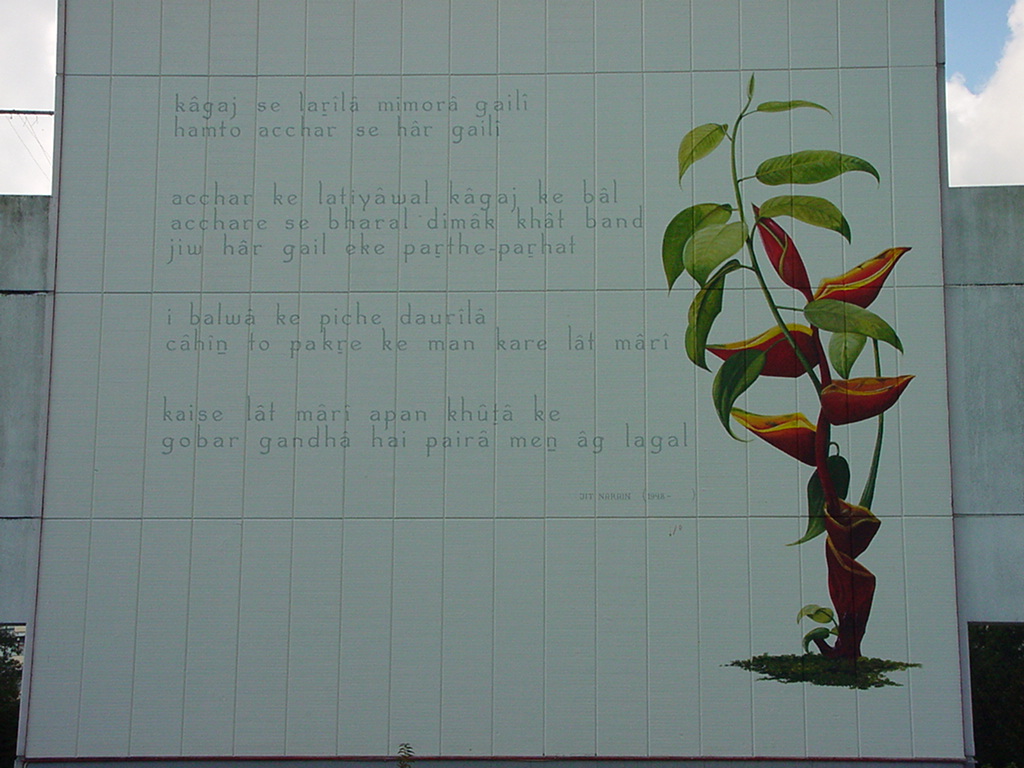 kâgaj se laṟîlâ mimorâ gailî
hamto acchar se hâr gailî
acchar ke latiyâwal kâgaj ke bâl
acchare se bharal dimâk khât band
jiw hâr gail eke paṟthe-paṟhat
i balwâ ke piche daurîlâ
câhîṉ to pakṟe ke man kare lât mârî
kaise lât mârî apan khûṯâ ke
gobar gandhâ hai pairâ meṉ âg lagal
JIT NARAIN (1948- )